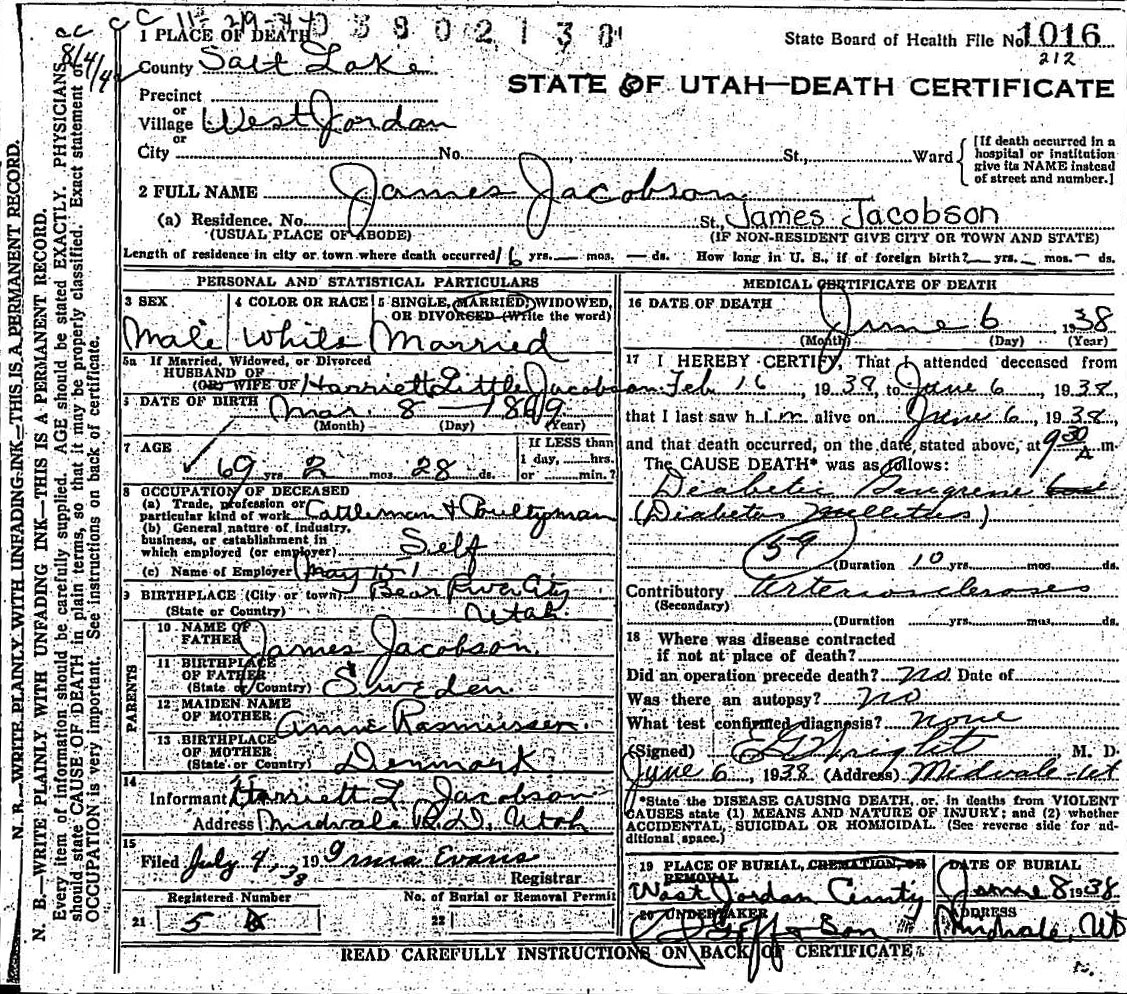 C C 11-29-44 0380213 0
1 PLACE OF DEATH
State Board of Health File No. 1016
212
County Salt Lake
STATE OF UTAH—DEATH CERTIFICATE
Precinct
or
Village West Jordan
or
City No. St., Ward
[If death occurred in a hospital or institution give its NAME instead of street and number.]
2 FULL NAME James Jacobson
(a) Residence. No. St. James Jacobson
(USUAL PLACE OF ABODE) (IF NON-RESIDENT GIVE CITY OR TOWN AND STATE)
Length of residence in city or town where death occurred 16 yrs. — mos. — ds. How long in U. S., if of foreign birth? — yrs. — mos. — ds.
PERSONAL AND STATISTICAL PARTICULARS
3 SEX Male
4 COLOR OR RACE White
5 SINGLE, MARRIED, WIDOWED, OR DIVORCED (Write the word) Married
5a If Married, Widowed, or Divorced
HUSBAND OF
(OR) WIFE OF Harriett Little Jacobson
6 DATE OF BIRTH Mar. 8 — 1869
(Month) (Day) (Year)
7 AGE 69 yrs. 2 mos. 28 ds.
If LESS than
1 day, hrs.
or min.?
8 OCCUPATION OF DECEASED
(a) Trade, profession or
particular kind of work Cattleman & Poultryman
(b) General nature of industry,
business, or establishment in
which employed (or employer) Self
(c) Name of Employer
9 BIRTHPLACE (City or town) Bear River City
(State or Country) Utah
PARENTS
10 NAME OF
FATHER James Jacobson.
11 BIRTHPLACE
OF FATHER
(State or Country) Sweden.
12 MAIDEN NAME
OF MOTHER Anne Rasmussen.
13 BIRTHPLACE
OF MOTHER
(State or Country) Denmark
14
Informant Harriett L. Jacobson
Address Midvale R.D. Utah
15
Filed July 4, 1938 Irma Evans
Registrar
Registered Number No. of Burial or Removal Permit
21 5 22
MEDICAL CERTIFICATE OF DEATH
16 DATE OF DEATH
June 6 1938
(Month) (Day) (Year)
17 I HEREBY CERTIFY, That I attended deceased from
Feb 16, 1938, to June 6, 1938,
that I last saw him alive on June 6, 1938,
and that death occurred, on the date stated above, at 9 30 A m.
The CAUSE DEATH* was as follows:
Diabetic Gangrene
(Diabetes Mellitus)
59
(Duration 10 yrs. mos. ds.
Contributory Arteriosclerosis
(Secondary)
(Duration yrs. mos. ds.
18 Where was disease contracted
if not at place of death?
Did an operation precede death? No Date of
Was there an autopsy? No
What test confirmed diagnosis? none
(Signed) E G Wright M. D.
June 6, 1938 (Address) Midvale - Ut
*State the DISEASE CAUSING DEATH, or, in deaths from VIOLENT
CAUSES state (1) MEANS AND NATURE OF INJURY; and (2) whether
ACCIDENTAL, SUICIDAL OR HOMICIDAL. (See reverse side for ad-
ditional space.)
19 PLACE OF BURIAL, CREMATION, OR
REMOVAL
DATE OF BURIAL
West Jordan June 8 1938
20 UNDERTAKER ADDRESS
Son Midvale, Ut
READ CAREFULLY INSTRUCTIONS ON BACK OF CERTIFICATE
N. B.—WRITE PLAINLY WITH UNFADING INK—THIS IS A PERMANENT RECORD.
N. B.—WRITE PLAINLY WITH UNFADING INK—THIS IS A PERMANENT RECORD.
Every item of information should be carefully supplied. AGE should be stated EXACTLY. PHYSICIANS
should state CAUSE OF DEATH in plain terms, so that it may be properly classified. Exact statement of
OCCUPATION is very important. See instructions on back of certificate.